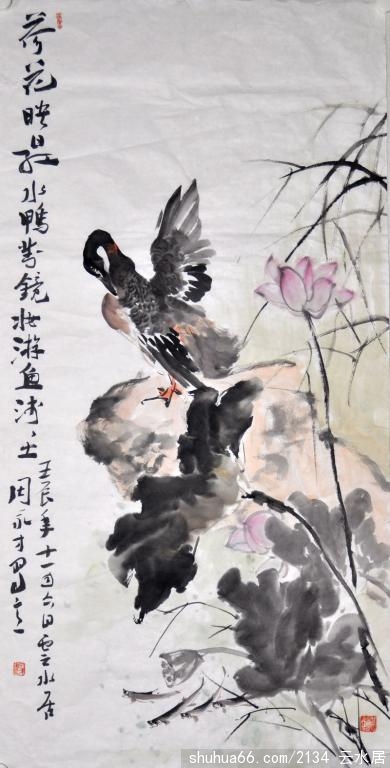 荷花映日红水鸭镜妆游鱼
周永才
壬辰年十一月六日云水居
shuhua66.com/2134 云水居